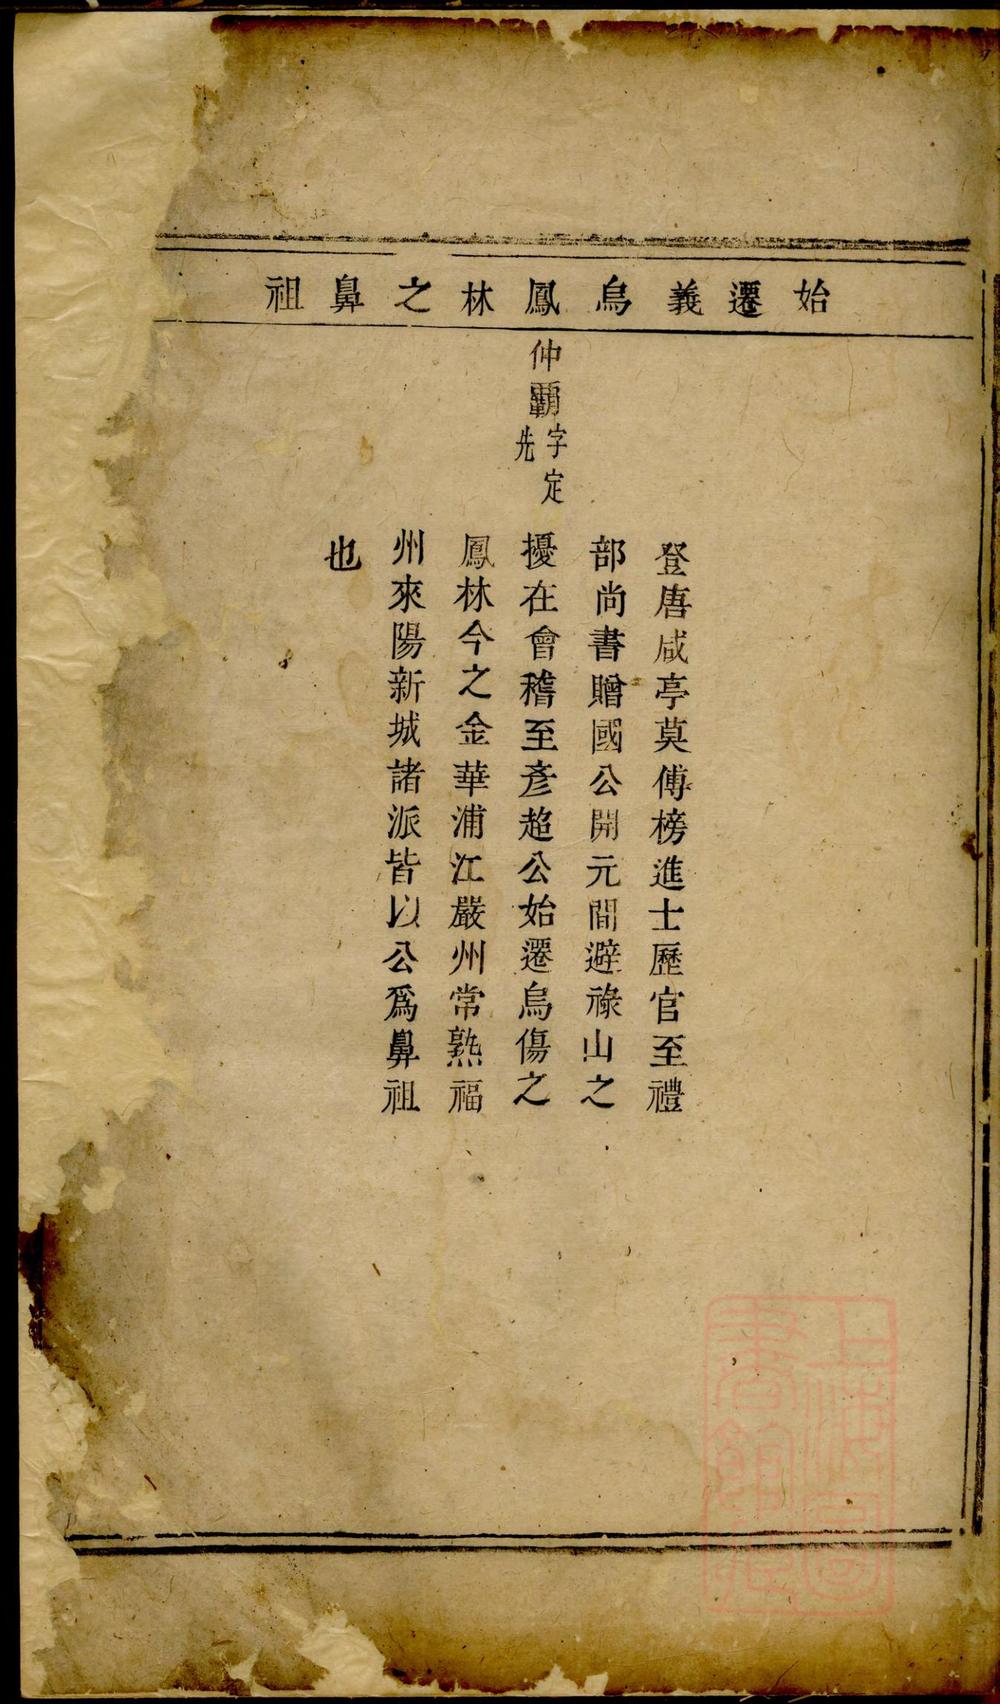 始遷義烏鳳林之鼻祖
仲霸字定先
登唐咸亭莫傅榜進士歷官至禮
部尚書贈國公開元間避祿山之
擾在會稽至彥超公始遷烏傷之
鳳林今之金華浦江嚴州常熟福
州來陽新城諸派皆以公爲鼻祖
也
上海圖
書館藏